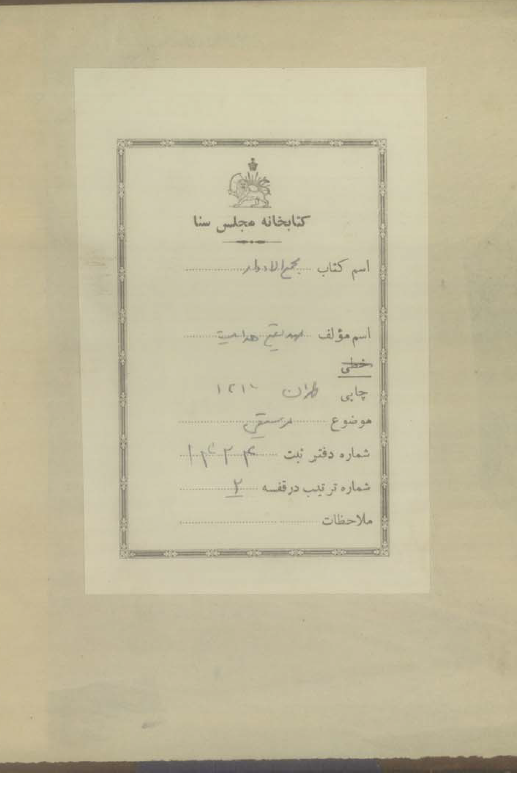 کتابخانه مجلس سنا
اسم کتاب مجمع‌الادوار
اسم مؤلف مهدیقلی هدایت
خطی
چاپی طهران
موضوع موسیقی
شماره دفتر ثبت
شماره ترتیب در قفسه ۲
ملاحظات